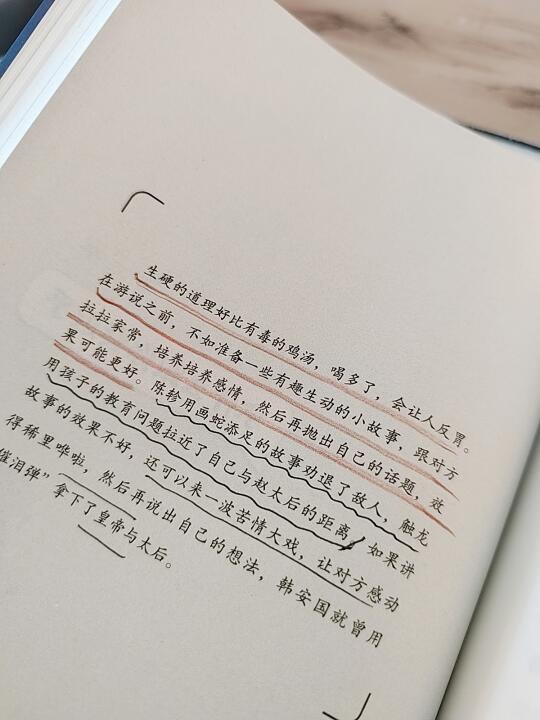 生硬的道理好比有毒的鸡汤，喝多了，会让人反胃。
在游说之前，不如准备一些有趣生动的小故事，跟对方
拉拉家常，培养培养感情，然后再抛出自己的话题，效
果可能更好。陈轸用画蛇添足的故事劝退了敌人，触龙
用孩子的教育问题拉近了自己与赵太后的距离。如果讲
故事的效果不好，还可以来一波苦情大戏，让对方感动
得稀里哗啦，然后再说出自己的想法，韩安国就曾用
催泪弹”拿下了皇帝与太后。